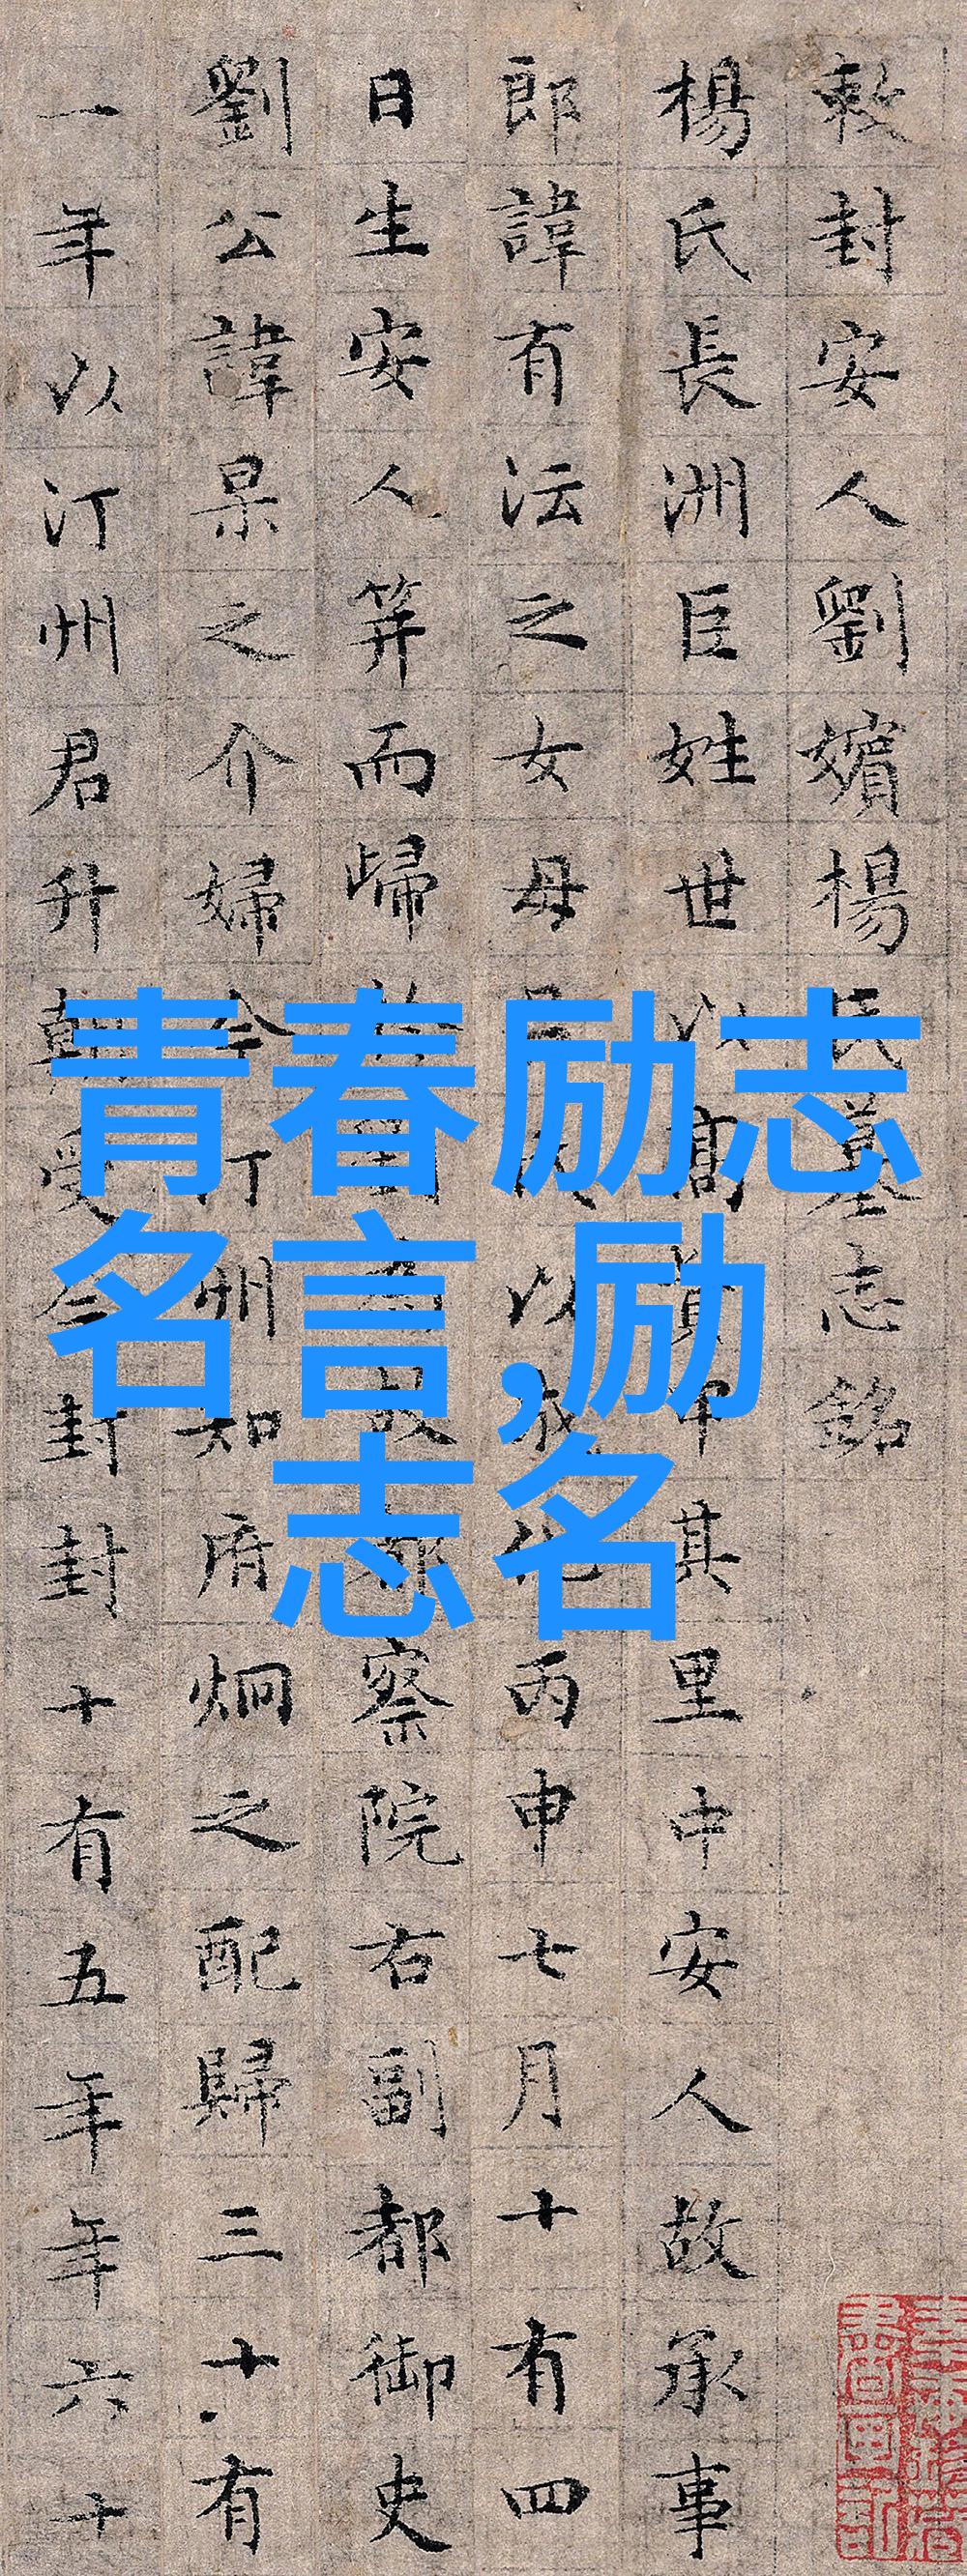 敕封安人劉嬪楊氏墓志銘
楊氏長洲巨姓世以高貲甲其里中安人故承事
郎諱有沄之女母氏以成化丙申七月十有四
日生安人笄而歸為故都察院右副都御史
劉公諱杲之介婦今汀州知府炯之配歸三十有
一年以汀州君升朝受今封封十有五年年六十
青春励志
名言,励
志名